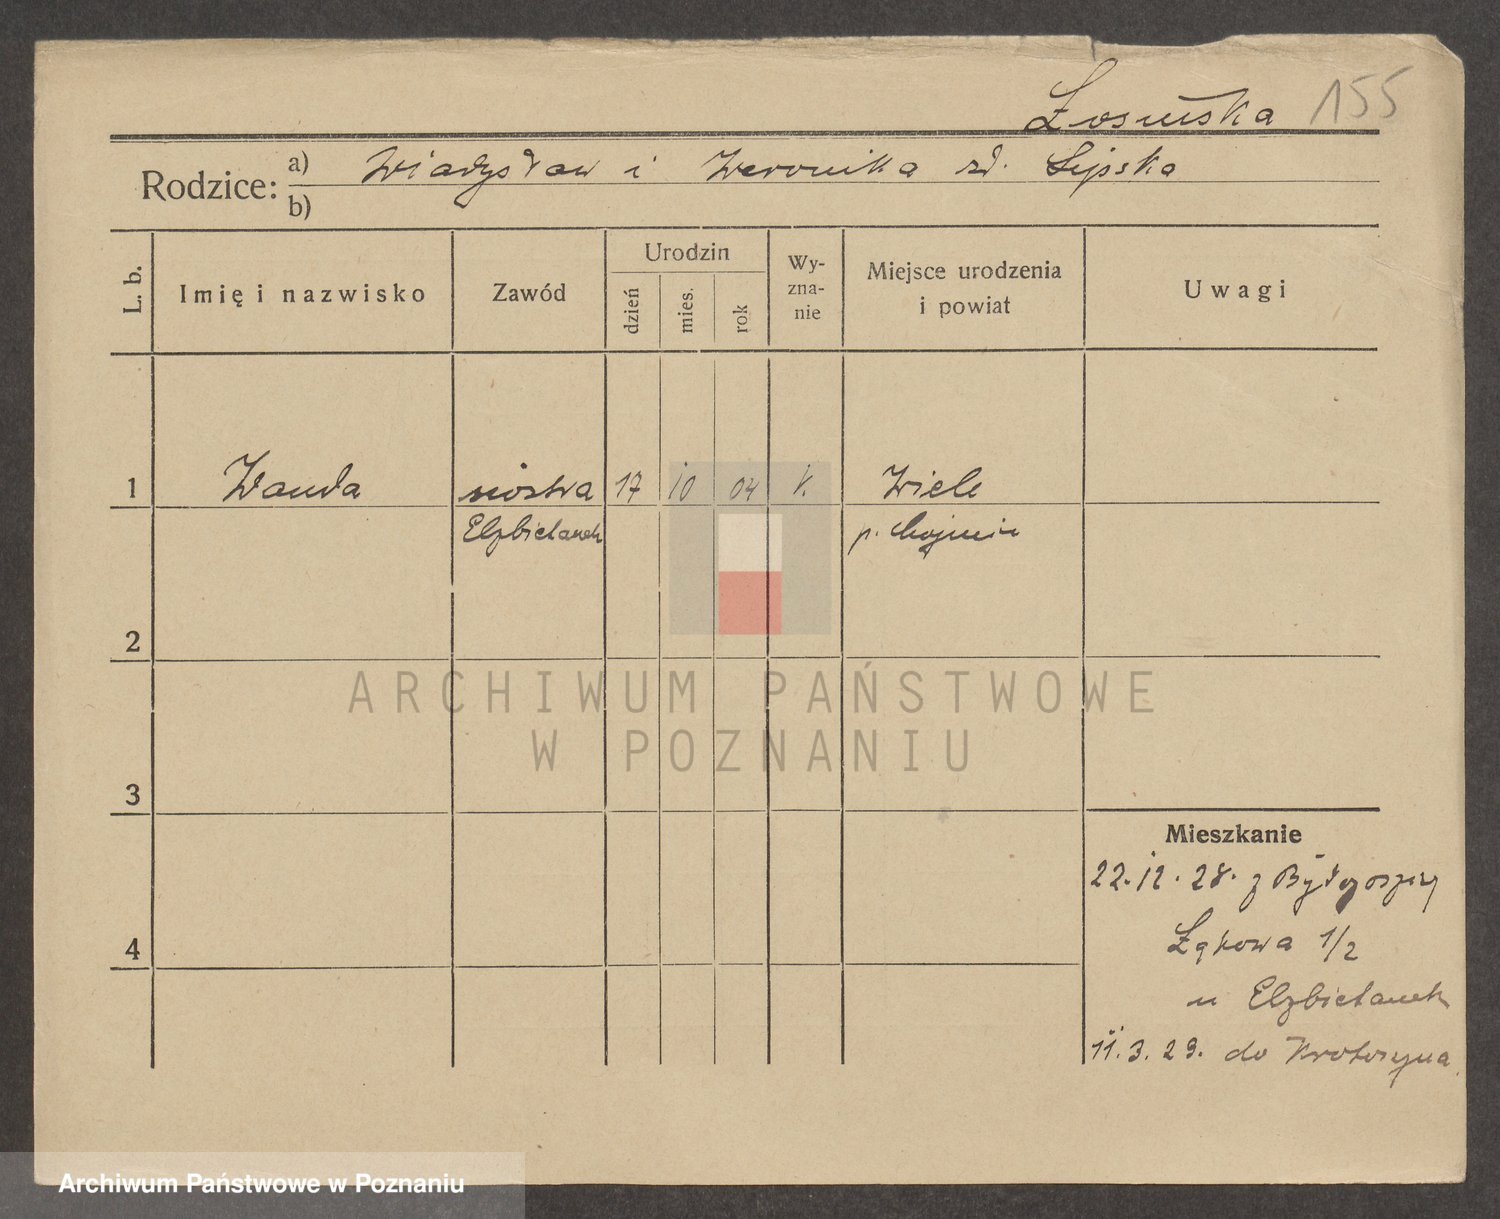 Łosińska 155
Rodzice: a) Władysław i Weronika zd. Lipska
b)
L. b.
Imię i nazwisko
Zawód
Urodzin
dzień
mies.
rok
Wy-
zna-
nie
Miejsce urodzenia
i powiat
Uwagi
1 Wanda siostra 17 10 04 k. Wiele
Elzbietanek p. Chojnice
2
3
4
Mieszkanie
22.12.28. z Bydgoszczy
Łąkowa 1/2
u Elzbietanek
11.3.29. do Krotoszyna
ARCHIWUM PAŃSTWOWE
W POZNANIU
Archiwum Państwowe w Poznaniu